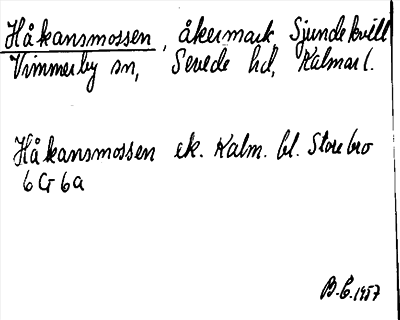 Håkansmossen, åkermark Sjundekvill
Vimmerby sn, Sevede hd, Kalmar l.
Håkansmossen ek. Kalm. bl. Storebro
6 G 6a
B.E. 1957